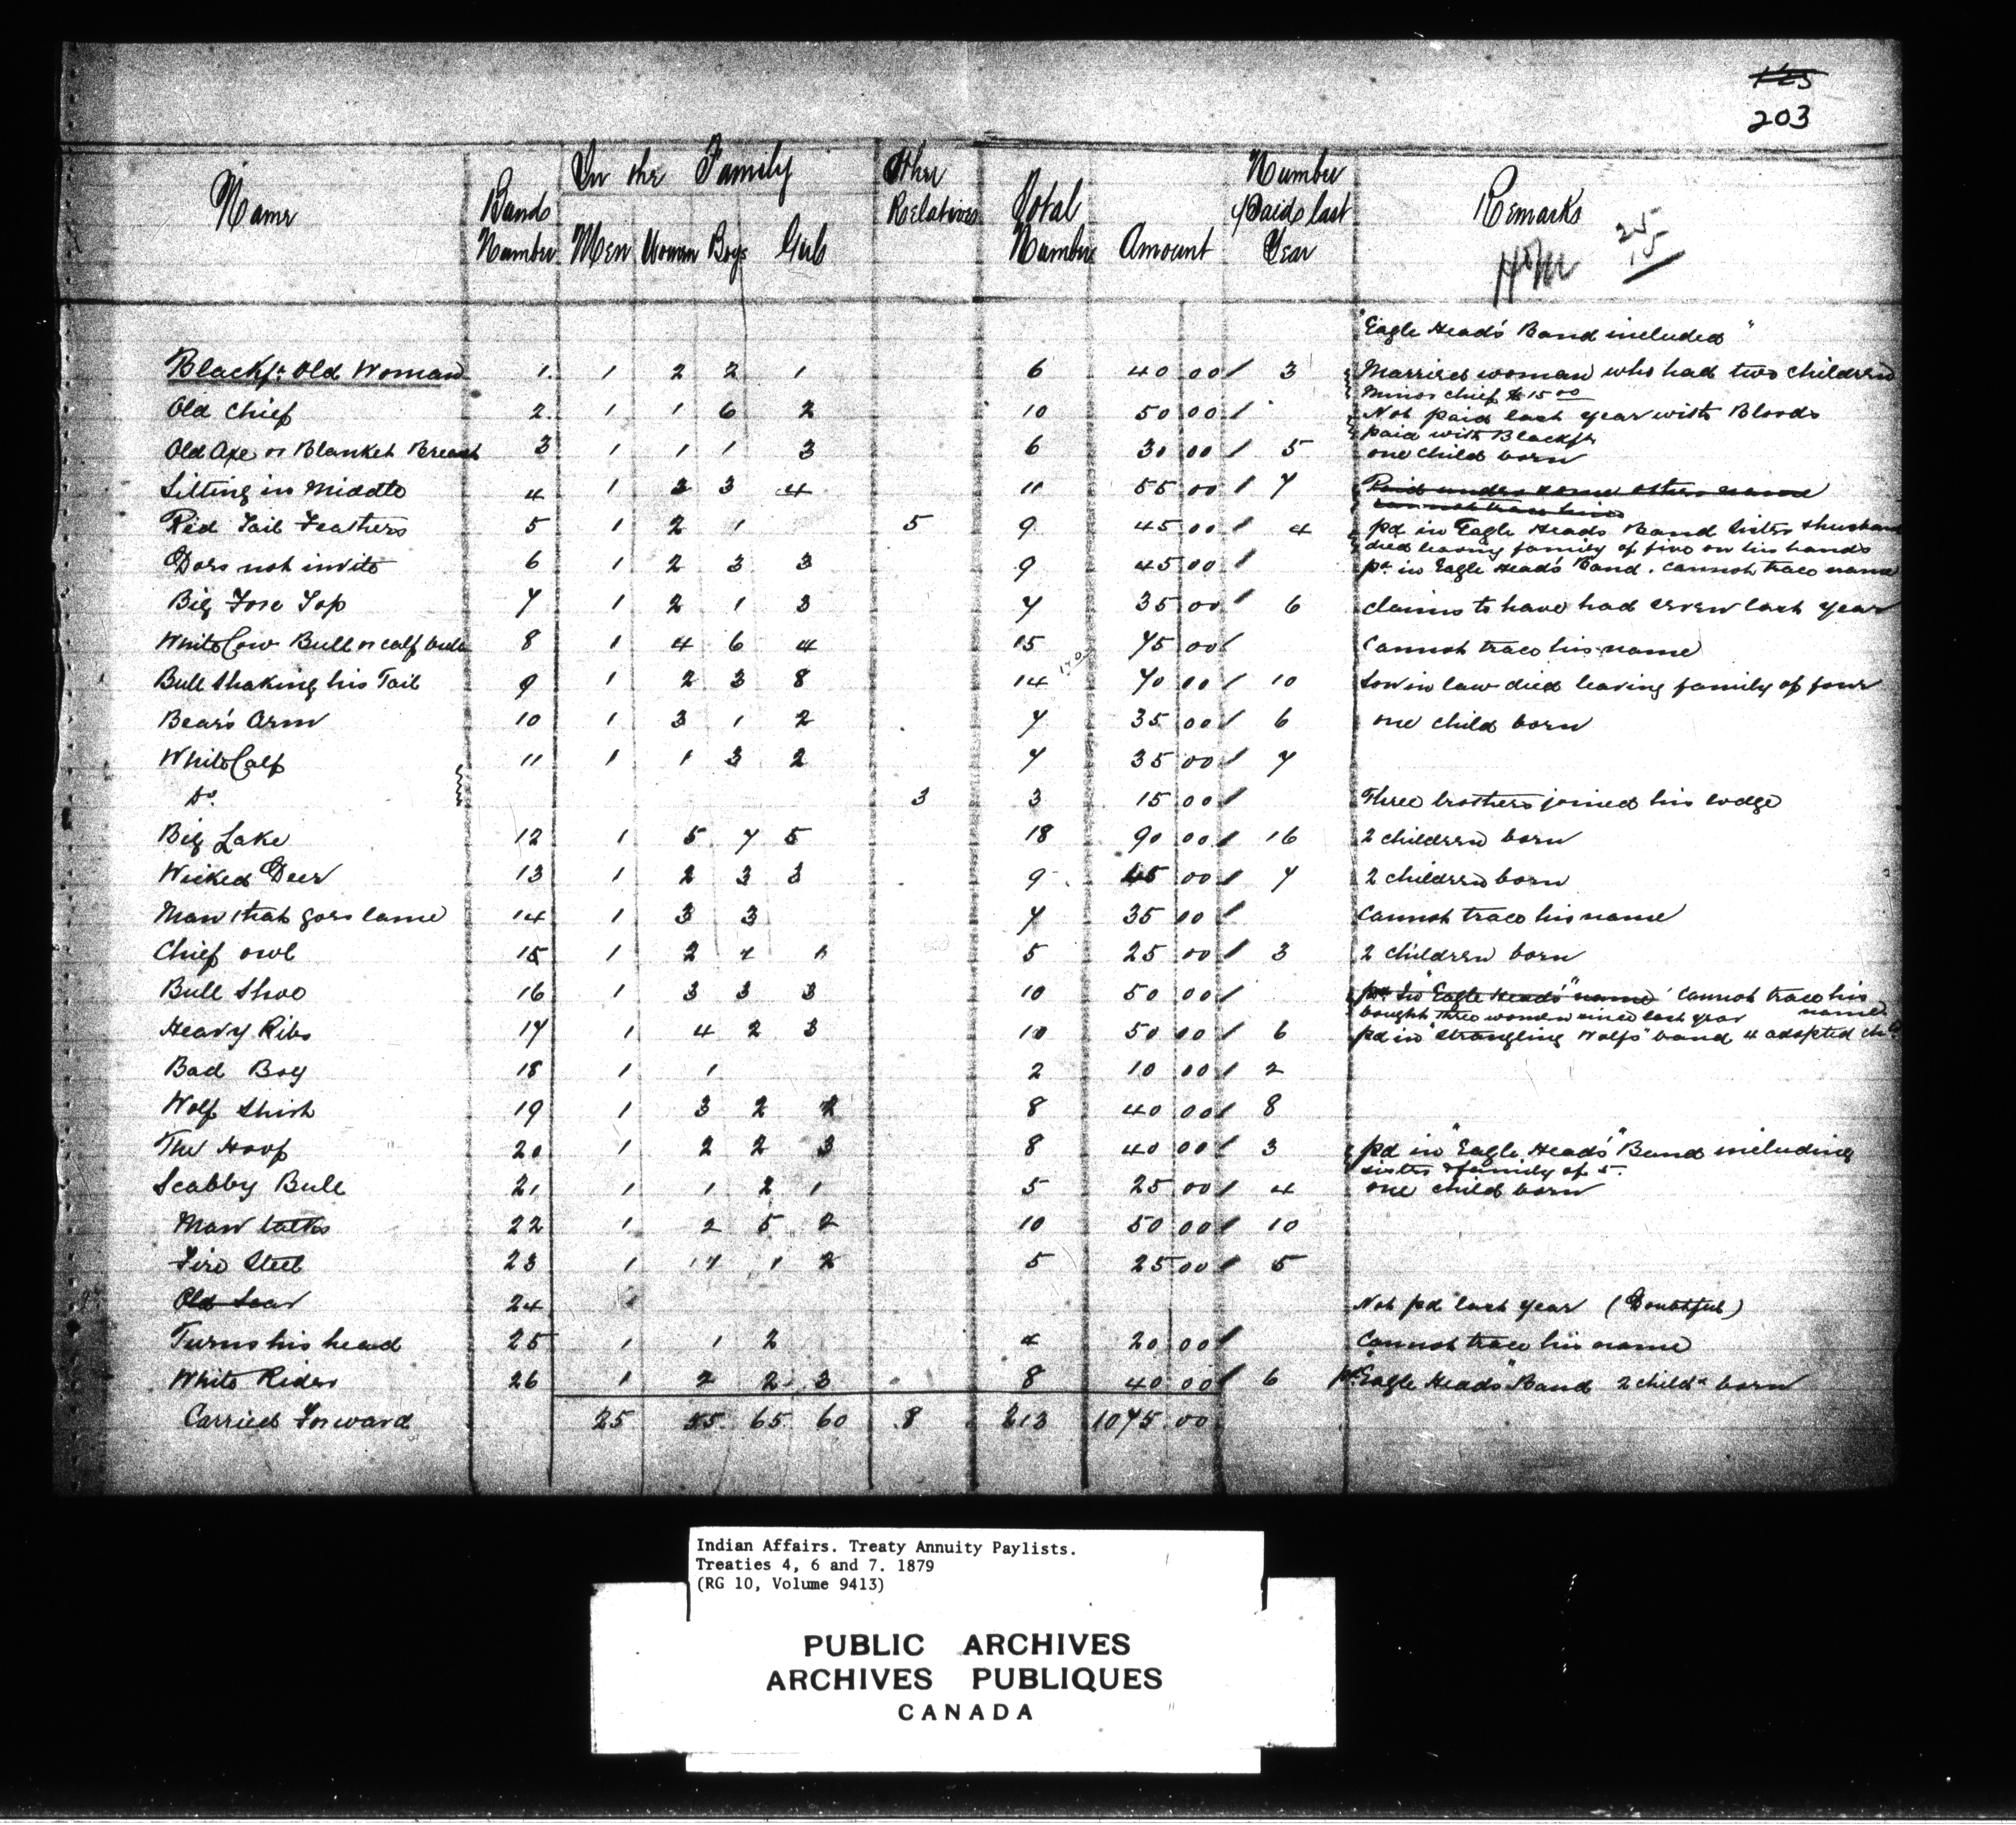 203
In the Family
Name Bands Number Men Women Boys Girls Other Relatives Total Number Amount Number Paid last Year Remarks
25
15
"Eagle Head's Band included"
Blackft Old Woman 1. 1 2 2 1 6 40 00 3 Married woman who had two children
Minor Chief $15 00
Old Chief 2. 1 1 6 2 10 50 00 Not paid last year with Bloods
paid with Blackft
Old Axe or Blanket Breast 3 1 1 1 3 6 30 00 5 one child born
Sitting in Middle 4 1 3 3 4 11 55 00 7 Paid under some other name
cannot trace him
Red Tail Feathers 5 1 2 1 5 9 45 00 4 pd in Eagle Heads Band Sisters husband
died leaving family of five on his hands
Does not invite 6 1 2 3 3 9 45 00 pd in Eagle Head's Band. Cannot trace name
Big Fore Top 7 1 2 1 3 7 35 00 6 claims to have had seven last year
White Cow Bull or calf bull 8 1 4 6 4 15 75 00 Cannot trace his name
Bull Shaking his Tail 9 1 2 3 8 14 70 00 10 Son in law died leaving family of four
Bear's Arm 10 1 3 1 2 7 35 00 6 one child born
White Calf 11 1 1 3 2 7 35 00 7
Do. 3 3 15 00 Three brothers joined his lodge
Big Lake 12 1 5 7 5 18 90 00 16 2 children born
Wicked Deer 13 1 2 3 3 9 45 00 7 2 children born
Man that goes lame 14 1 3 3 7 35 00 Cannot trace his name
Chief Owl 15 1 2 1 1 5 25 00 3 2 children born
Bull Shoe 16 1 3 3 3 10 50 00 pd in "Eagle Heads" name Cannot trace his name
bought three women since last year
Heavy Ribs 17 1 4 2 3 10 50 00 6 pd in "Strangling Wolfs" band 4 adopted
Bad Boy 18 1 1 2 10 00 2
Wolf Shirt 19 1 3 2 2 8 40 00 8
The Hoop 20 1 2 2 3 8 40 00 3 pd in "Eagle Heads" Band including
sister & family of 5.
Scabby Bull 21 1 1 2 1 5 25 00 4 one child born
Man talks 22 1 2 5 2 10 50 00 10
Fire Steel 23 1 1 1 2 5 25 00 5
Old Scar 24 Not pd last year (Doubtful)
Turns his head 25 1 1 2 4 20 00 Cannot trace his name
White Rider 26 1 2 2 3 8 40 00 6 pd "Eagle Heads" Band 2 childn born
Carried Forward 25 55 65 60 8 213 1075.00
Indian Affairs. Treaty Annuity Paylists.
Treaties 4, 6 and 7. 1879
(RG 10, Volume 9413)
PUBLIC ARCHIVES
ARCHIVES PUBLIQUES
CANADA